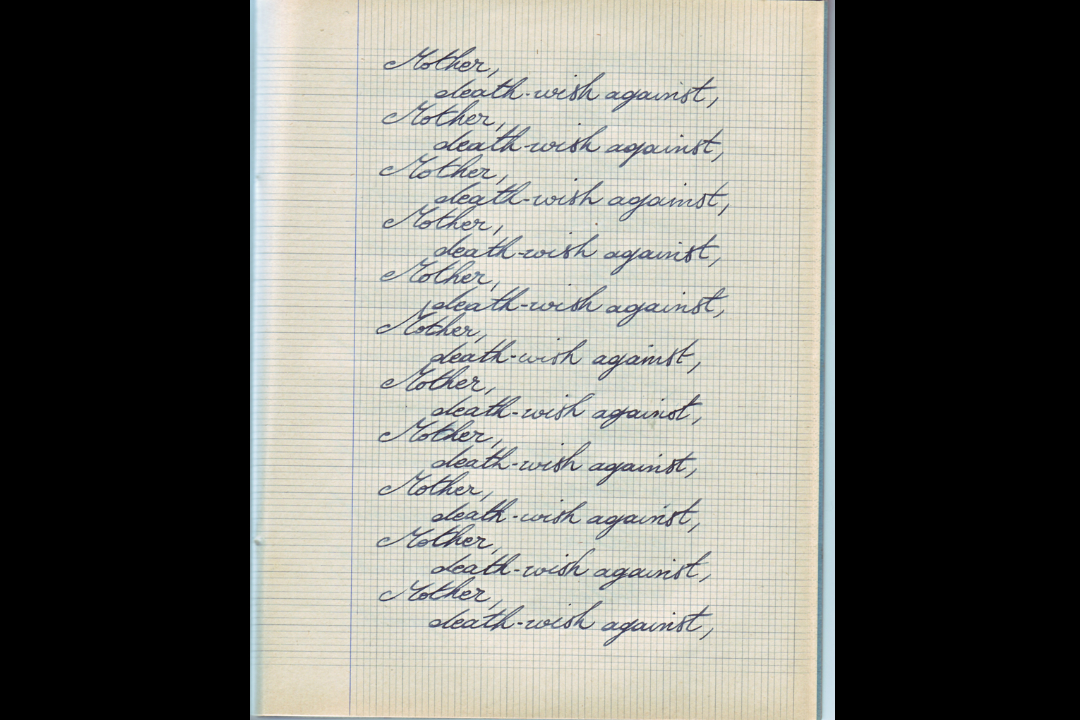 Mother,
death-wish against,
Mother,
death-wish against,
Mother,
death-wish against,
Mother,
death-wish against,
Mother,
death-wish against,
Mother,
death-wish against,
Mother,
death-wish against,
Mother,
death-wish against,
Mother,
death-wish against,
Mother,
death-wish against,
Mother,
death-wish against,